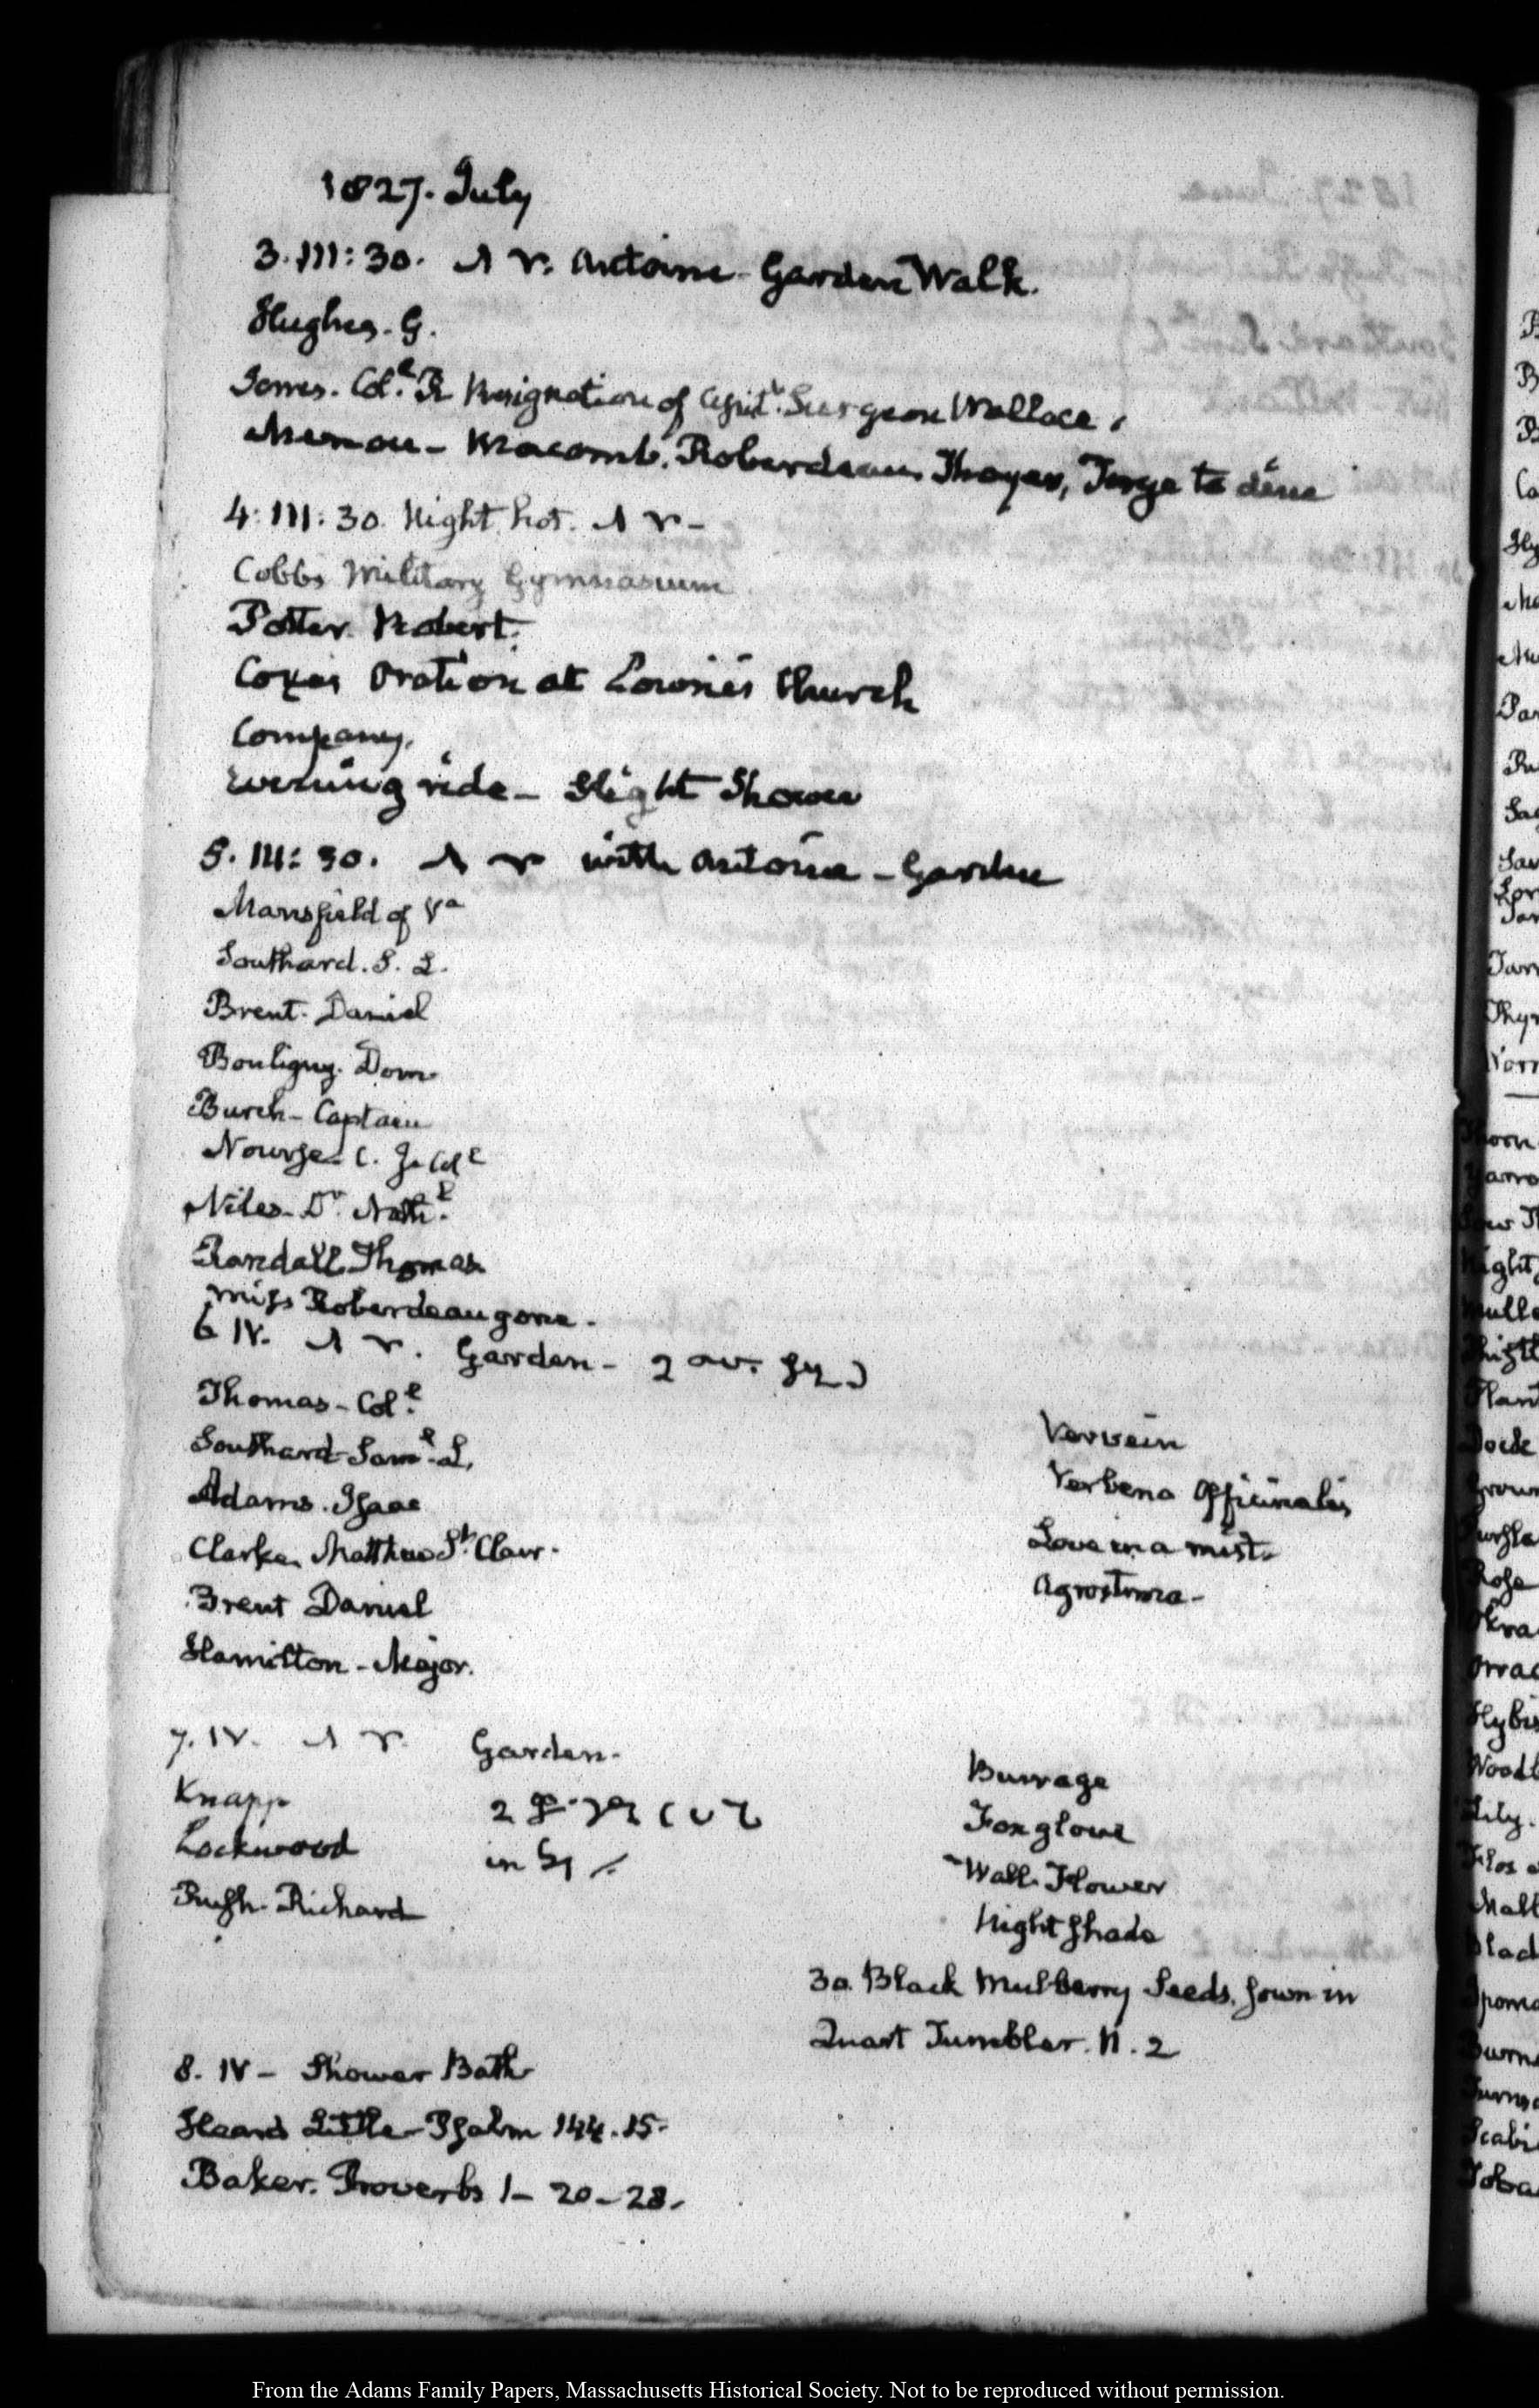 1827. July
3. III: 30. Antoine - Garden Walk.
Hughes. G.
Jones. Col.l R Resignation of Assist.t Surgeon Wallace.
Menou - Macomb. Roberdeau Thayer, to dine
4: III: 30. Night hot.
Cobbs Military Gymnasium
Potter. Robert.
Coxes Oration at Church
Company.
Evening ride - Slight Shower
5. III: 30. with Antoine - Garden
Mansfield of Va
Southard. S. L.
Brent. Daniel
Bouligny. Dom.
Burch - Captain
Nourse. C. J. Coll
Niles - Dr. Nath.l
Randall Thomas
Miss Roberdeau gone -
6 IV. Garden -
Thomas - Col.l
Southard Sam.l L.
Adams. Isaac
Clarke, Matthew St. Clair.
Brent Daniel
Hamilton - Major.
Vervein
Verbena Officinalis
Love in a mist.
Agrostema -
7. IV. Garden -
Knapp
Lockwood
in
Rush. Richard
Burrage
Foxglove
Wall. Flower
Night shade
30. Black Mulberry Seeds. sown in
Quart Tumbler. N. 2
8. IV - Shower Bath
Heard Little - Psalm 144. 15.
Baker. Proverbs 1 - 20 - 28.
From the Adams Family Papers, Massachusetts Historical Society. Not to be reproduced without permission.